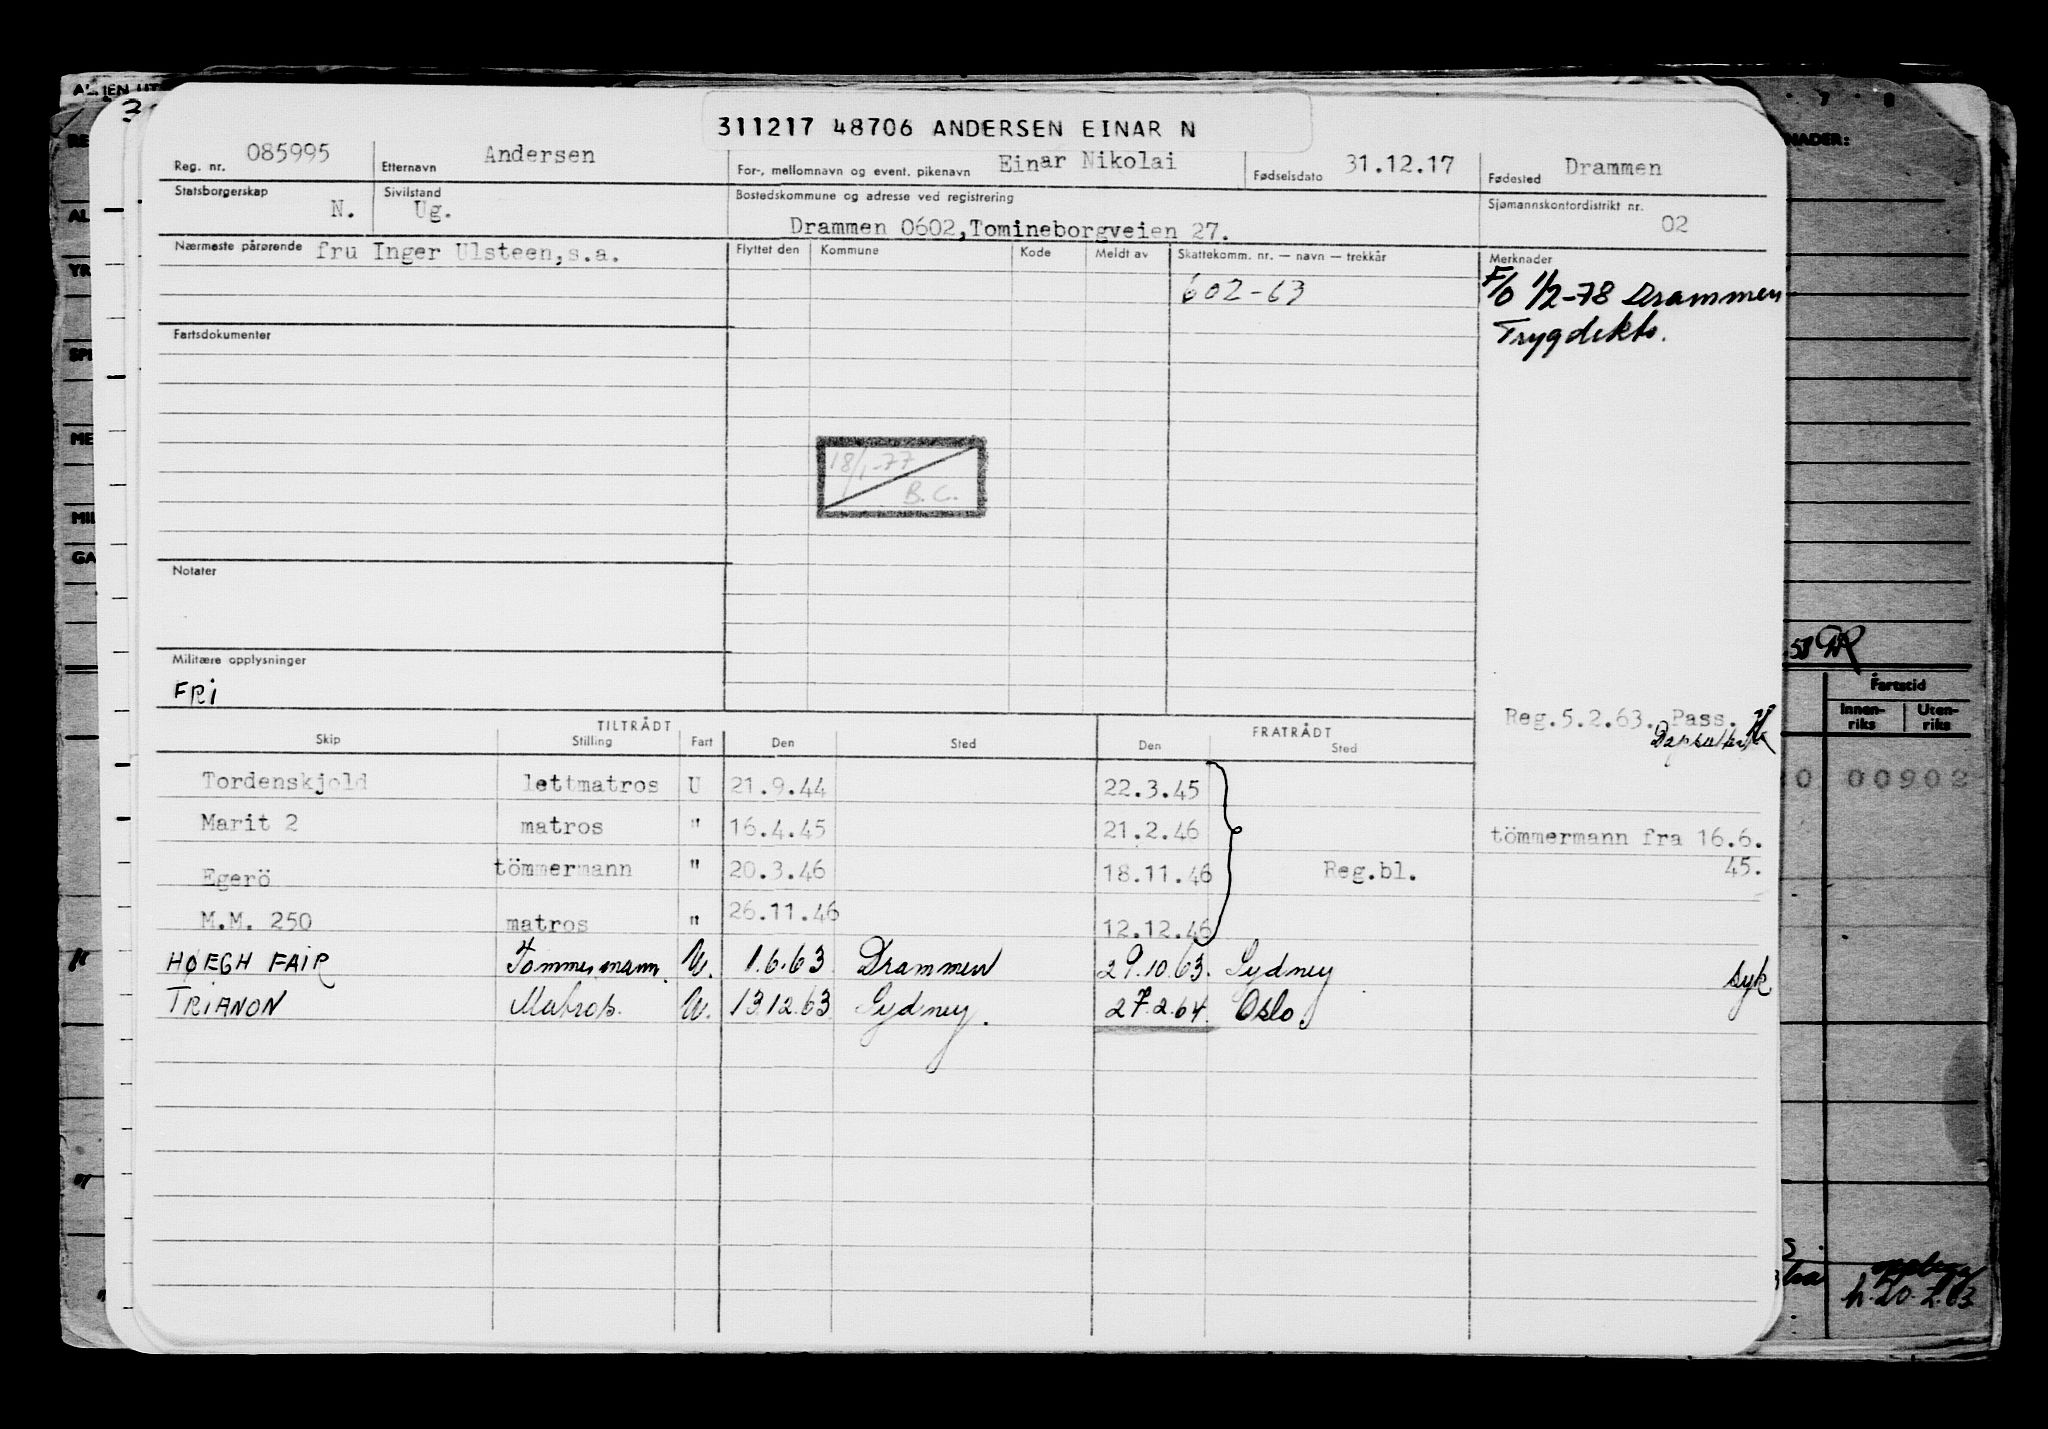 311217 48706 ANDERSEN EINAR N
Reg. nr. 085995 Etternavn Andersen For-, mellomnavn og event. pikenavn Einar Nikolai Fødselsdato 31.12.17 Fødested Drammen
Statsborgerskap N. Sivilstand Ug. Bostedskommune og adresse ved registrering Sjømannskontordistrikt nr. 02
Drammen 0602,Tomineborgveien 27.
Nærmeste pårørende fru Inger Ulsteen,s.a. Flyttet den Kommune Kode Meldt av Skattekomm. nr. — navn — trekkår Merknader
602-63 F/O 1/2-78 Drammen
Trygdekto.
Fartsdokumenter
18/1-77
B.C.
Notater
Militære opplysninger
FRI
Reg.5.2.63. Pass.
TILTRÅDT FRATRÅDT
Skip Stilling Fart Den Sted Den Sted
Tordenskjold lettmatros U 21.9.44 22.3.45
Marit 2 matros " 16.4.45 21.2.46 tömmermann fra 16.6.
45.
Egerö tömmermann " 20.3.46 18.11.46 Reg.bl.
M.M. 250 matros " 26.11.46 12.12.46
HØEGH FAIR Tømmermann. U. 1.6.63 Drammen 29.10.63. Sydney syk
TRIANON Matros. U. 13.12.63 Sydney. 27.2.64. Oslo.
7 8
NADER:
RE
AL
YR
SPE
ME
MIL
GA
Fartstid
Innen-riks Uten-riks
00902
h. 20.2.63